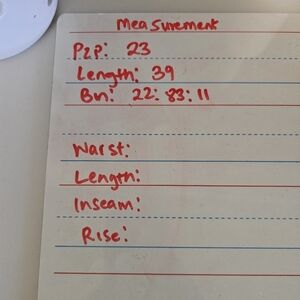 Measurement
P2P: 23
Length: 39
Bn: 22:83:11
Waist:
Length:
Inseam:
Rise: